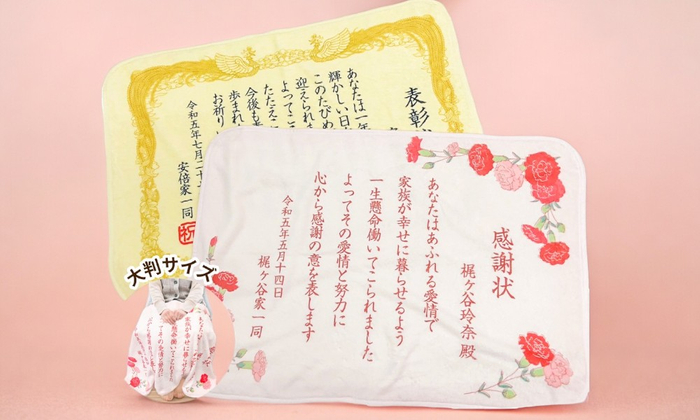 感謝状
梶ヶ谷玲奈 殿
あなたはあふれる愛情で
家族が幸せに暮らせるよう
一生懸命働いてこられました
よってその愛情と努力に
心から感謝の意を表します
令和五年五月十四日
梶ヶ谷家一同
表彰
あなたは一年
輝かしい日
このたびめ
迎えられま
よってここ
たたえこ
今後も
歩まれ
お祈り
令和五年七月二十
安倍家一同
祝
大判サイズ